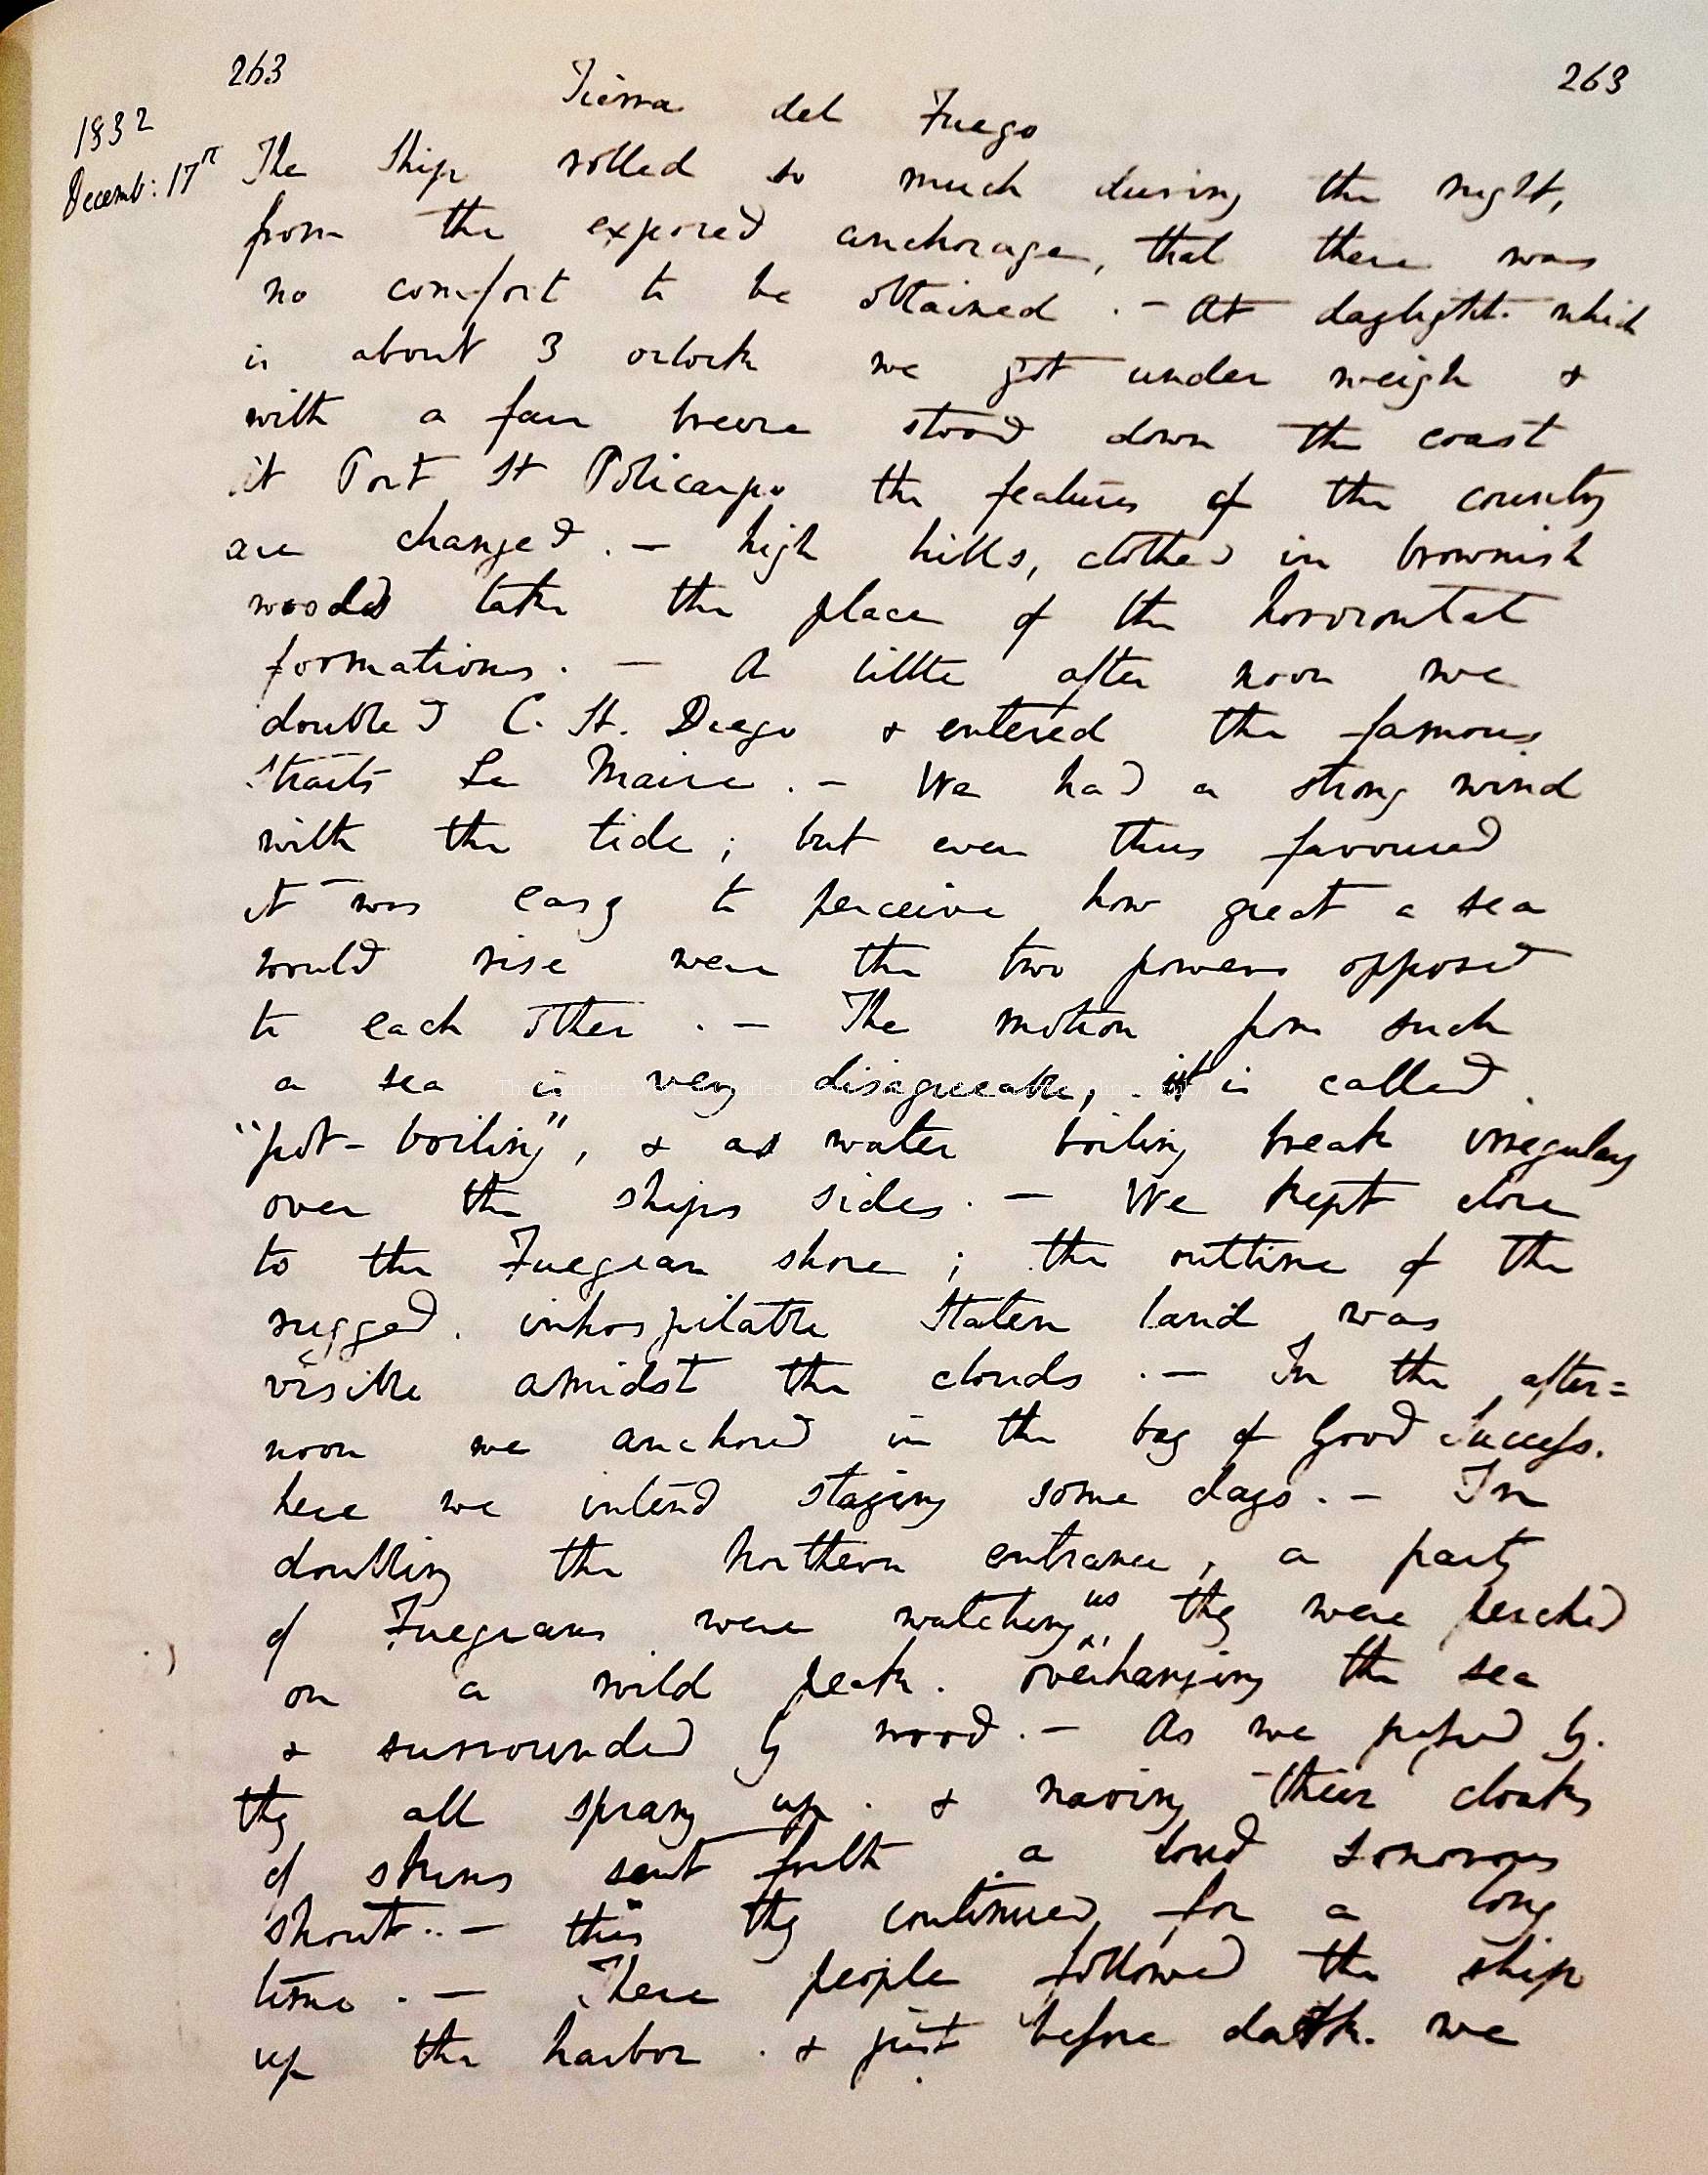 263 Tierra del Fuego 263
1832
Decemb: 17th The Ship rolled so much during the night,
from the exposed anchorage, that there was
no comfort to be obtained. — At daylight which
is about 3 oclock we got under weigh &
with a fair breeze stood down the coast
at Port St Policarpo the features of the country
are changed. — high hills, clothed in brownish
woods take the place of the horizontal
formations. — A little after noon we
doubled C. St. Diego & entered the famous
Straits Le Maire. — We had a strong wind
with the tide; but even thus favoured
it was easy to perceive how great a sea
would rise were the two powers opposed
to each other. — The motion from such
a sea is very disagreeable, it is called
"pot-boiling", & as water boiling breaks irregulary
over the ships sides. — We kept close
to the Fuegian shore; the outline of the
rugged, inhospitable Staten land was
visible amidst the clouds. — In the after=
noon we anchored in the bay of Good Success.
here we intend staying some days. — In
doubling the Northern entrance, a party
of Fuegians were watching us, they were perched
on a wild peak. overhanging the sea
& surrounded by wood. — As we passed by.
they all sprang up. & waving their cloaks
of skins sent forth a loud sonorous
shout. — this they continued for a long
time. — These people followed the ship
up the harbor. & just before dark. we